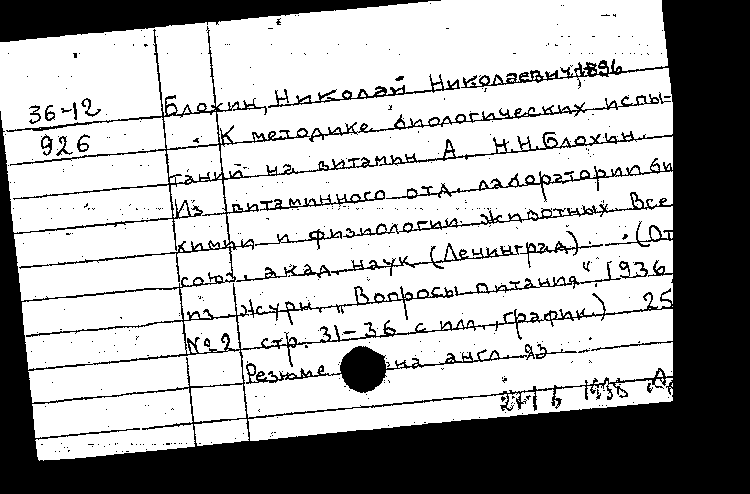 36-12
926
Блохин, Николай Николаевич, 1896
К методике биологических испы-
таний на витамин А. Н.Н.Блохин.
Из витаминного отд. лаборатории би
химии и физиологии животных Все
союз. акад. наук (Ленинград). (От
из журн. „Вопросы питания“. 1936
№2 стр. 31-36 с илл., график.) 25
Резюме на англ. яз.
1938